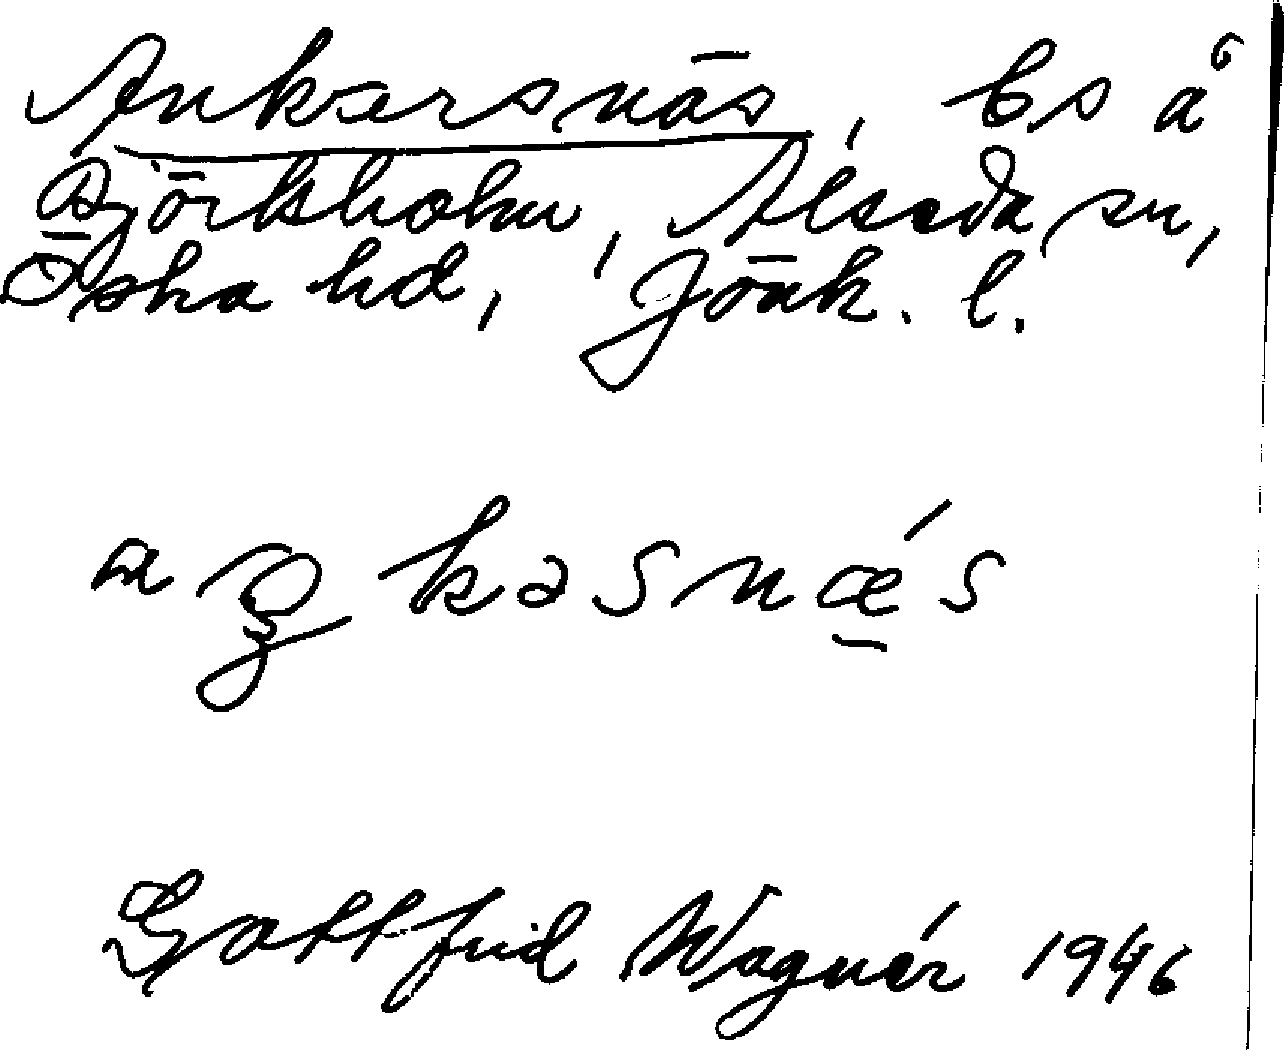 Ankarsnäs, ls å
Björkholm, Alseda sn,
Östra hd, Jönk. l.
aŋkasnæ´s
Gottfrid Wagnér 1946